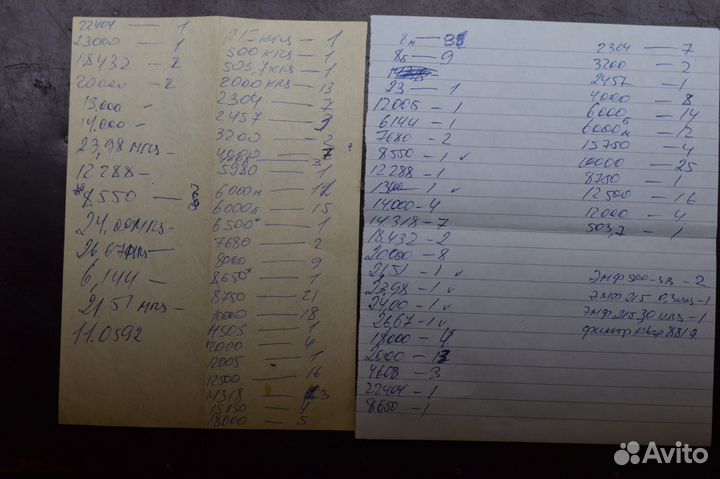 22404 — 1
23000 — 1
18.432 — 2
20000 — 2
13.000 —
14.000 —
23,98 МГЦ —
12 288 —
8550 —
24.00 МГЦ —
26.67 МГЦ —
6,144 —
21.51 МГЦ —
11.0592
215 КГЦ — 1
500 КГЦ — 1
503,7 КГЦ — 1
2000 КГЦ — 13
2304 — 7
2457 —
3200 — 2
4000 — 7
5980 — 1
6000м — 12
6000б — 15
6500* — 1
7680 — 2
8000 — 9
8650* — 1
8750 — 21
10000 — 18
11505 — 1
12000 — 4
12005 — 1
12500 — 16
14318 — 3
15750 — 4
18000 — 5
2м —
8б — 9
23 — 1
12005 — 1
6144 — 1
7680 — 2
8550 — 1 ✓
12288 — 1
13000 — 1 ✓
14000 — 4
14.318 — 7
18.432 — 2
20000 — 8
21,51 — 1 ✓
23,98 — 1 ✓
24,00 — 1 ✓
26,67 — 1 ✓
18000 — 4
2000 — 13
4608 — 3
22404 — 1
8650 — 1
2304 — 7
3200 — 2
2457 — 1
4000 — 8
6000б — 14
6000м — 12
15750 — 4
10000 — 25
8750 — 1
12500 — 16
12000 — 4
503,7 — 1
ЭМФ 500-3В — 2
ЭМФ 215 0,3 КГЦ — 1
ЭМФ 215 30 КГЦ — 1
фильтр квар 8819
Avito